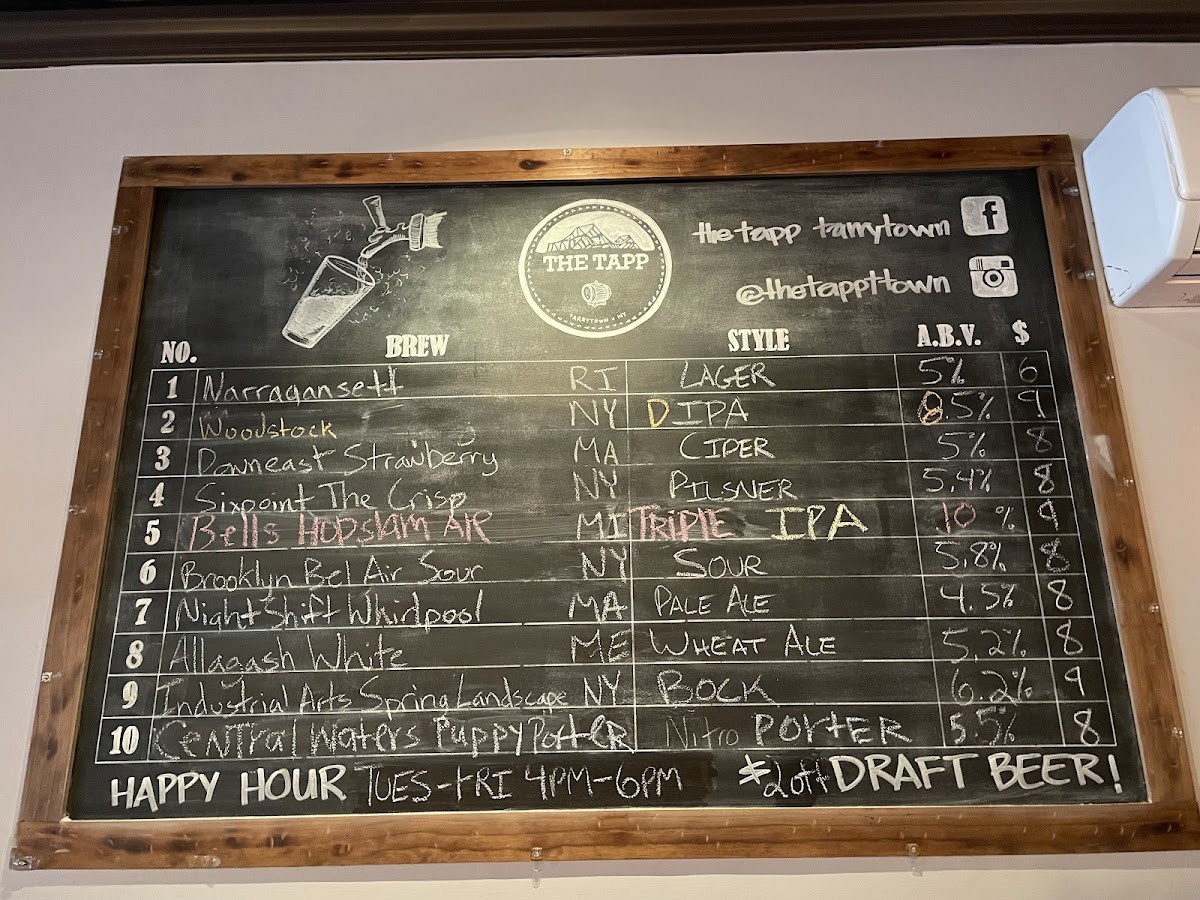 THE TAPP
TARRYTOWN • NY
the tapp tarrytown
@thetappttown
NO. BREW STYLE A.B.V. $
1 Narragansett RI LAGER 5% 6
2 Woodstock NY DIPA 8.5% 9
3 Downeast Strawberry MA CIDER 5% 8
4 Sixpoint The Crisp NY PILSNER 5.4% 8
5 Bells HOPSLAM AIR MI TRIPLE IPA 10 % 9
6 Brooklyn Bel Air Sour NY SOUR 5.8% 8
7 Night Shift Whirlpool MA PALE ALE 4.5% 8
8 Allagash White ME WHEAT ALE 5.2% 8
9 Industrial Arts Spring Landscape NY BOCK 6.2% 9
10 CeNTRal Waters PuppyPorteR Nitro PORTER 5.5% 8
HAPPY HOUR TUES-FRI 4PM-6PM $2off DRAFT BEER!